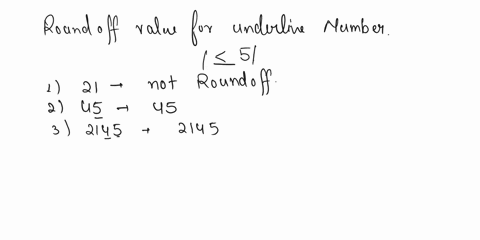 Roundoff value for underline Number.
/ ≤ 5/
1) 21 → not Roundoff.
2) 45 → 45
3) 2145 → 2145